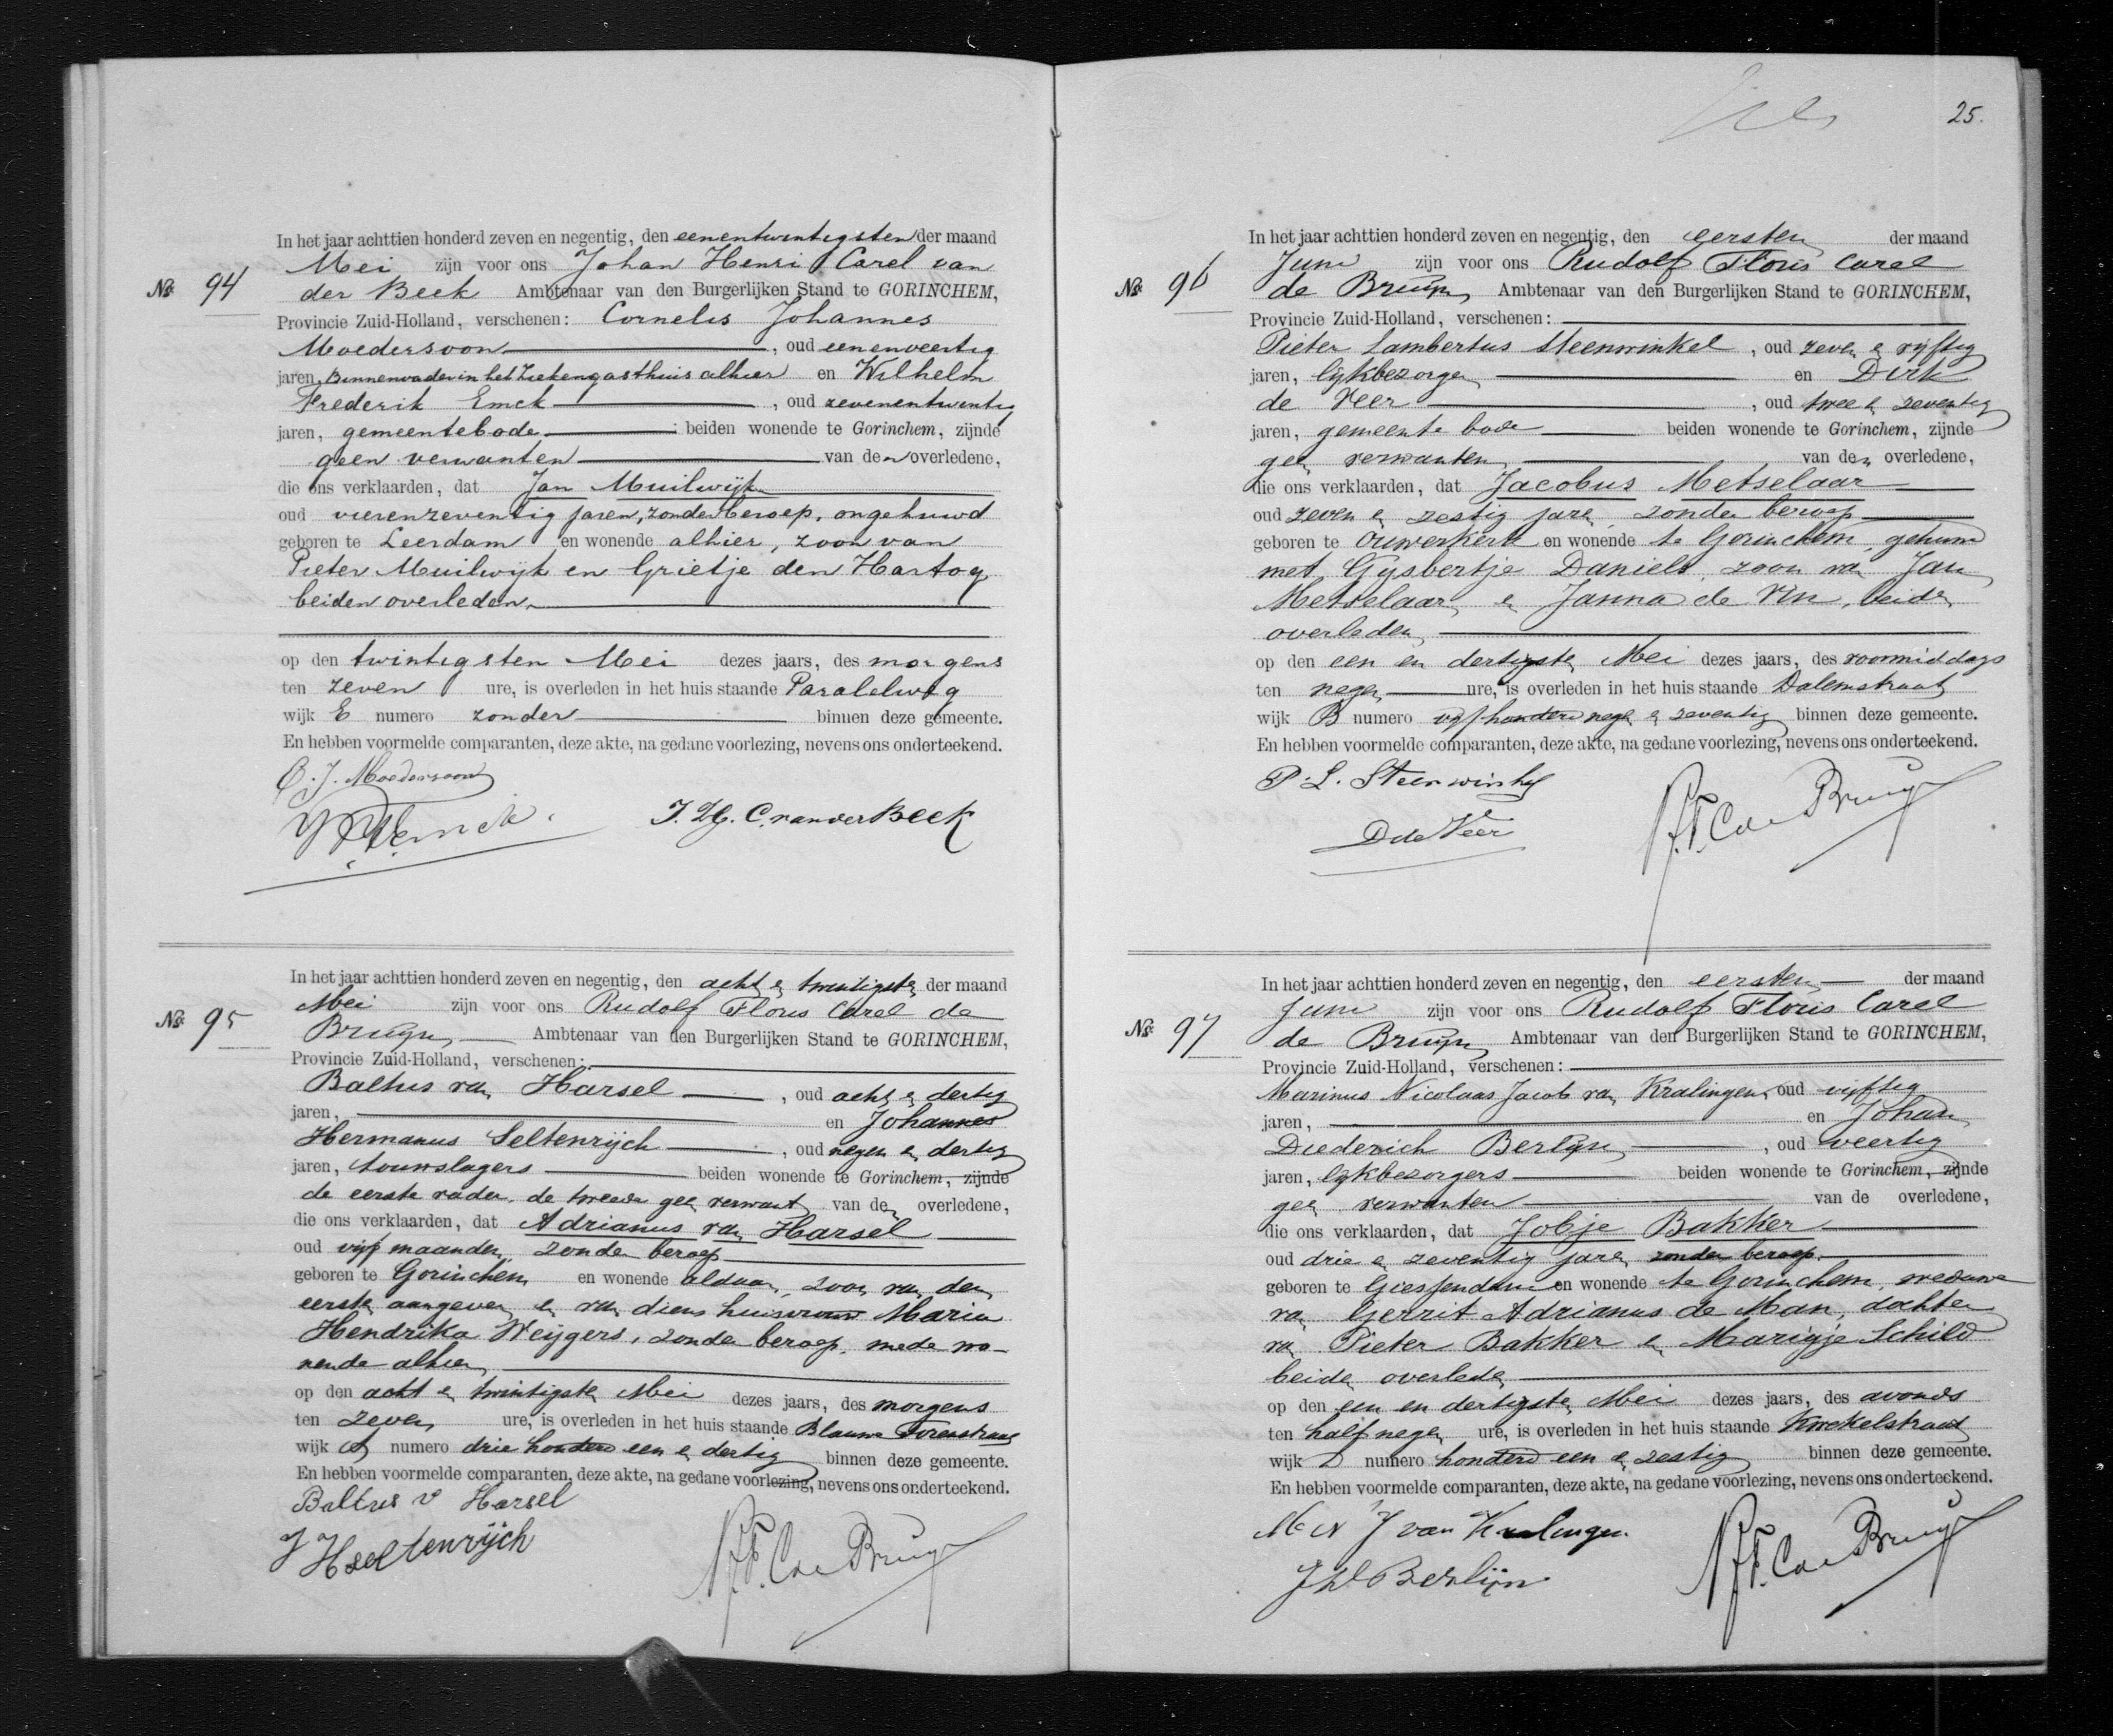 25.
In het jaar achttien honderd zeven en negentig, den eenentwintigsten der maand
Mei zijn voor ons Johan Henri Carel van
No. 94 der Beek Ambtenaar van den Burgerlijken Stand te GORINCHEM,
Provincie Zuid-Holland, verschenen: Cornelis Johannes
Moedersoon, oud eenenveertig
jaren, Binnenvader in het Ziekengasthuis alhier en Wilhelm
Frederik Emck, oud zevenentwintig
jaren, gemeentebode beiden wonende te Gorinchem, zijnde
geen verwanten van den overledene,
die ons verklaarden, dat Jan Muilwijk
oud vierenzeventig jaren, zonder beroep, ongehuwd
geboren te Leerdam en wonende alhier, zoon van
Pieter Muilwijk en Grietje den Hartog
beiden overleden.
op den twintigsten Mei dezes jaars, des morgens
ten zeven ure, is overleden in het huis staande Paralelweg
wijk E numero zonder binnen deze gemeente.
En hebben voormelde comparanten, deze akte, na gedane voorlezing, nevens ons onderteekend.
C. J. Moedersoon
W F Emck. J. H. C. van der Beek
In het jaar achttien honderd zeven en negentig, den acht en twintigsten der maand
Mei zijn voor ons Rudolf Floris Carel de
No. 95 Bruijn Ambtenaar van den Burgerlijken Stand te GORINCHEM,
Provincie Zuid-Holland, verschenen:
Baltus van Harsel, oud acht en dertig
jaren, en Johannes
Hermanus Seltenrijch, oud negen en dertig
jaren, touwslagers beiden wonende te Gorinchem, zijnde
de eerste vader, de tweede geen verwant van den overledene,
die ons verklaarden, dat Adrianus van Harsel
oud vijf maanden, zonder beroep
geboren te Gorinchem en wonende aldaar, zoon van den
eersten aangever en van diens huisvrouw Maria
Hendrika Weijgers, zonder beroep, mede wo-
nende alhier
op den acht en twintigsten Mei dezes jaars, des morgens
ten zeven ure, is overleden in het huis staande Blauwe Torenstraat
wijk A numero drie honderd een en dertig binnen deze gemeente.
En hebben voormelde comparanten, deze akte, na gedane voorlezing, nevens ons onderteekend.
Baltus v Harsel
J H Seltenrijch R. F. C. de Bruijn
In het jaar achttien honderd zeven en negentig, den eersten der maand
Juni zijn voor ons Rudolf Floris Carel
No. 96 de Bruijn Ambtenaar van den Burgerlijken Stand te GORINCHEM,
Provincie Zuid-Holland, verschenen:
Pieter Lambertus Steenwinkel, oud zeven en vijftig
jaren, lijkbezorger en Dirk
de Veer, oud twee en zeventig
jaren, gemeente bode beiden wonende te Gorinchem, zijnde
geen verwanten van den overledene,
die ons verklaarden, dat Jacobus Metselaar
oud zeven en zestig jaren, zonder beroep
geboren te Ouwerkerk en wonende te Gorinchem, gehuwd
met Gijsbertje Daniels, zoon van Jan
Metselaar en Janna de Vin, beiden
overleden,
op den een en dertigsten Mei dezes jaars, des voormiddags
ten negen ure, is overleden in het huis staande Dalemstraat
wijk B numero vijf honderd negen en zeventig binnen deze gemeente.
En hebben voormelde comparanten, deze akte, na gedane voorlezing, nevens ons onderteekend.
P. L. Steenwinkel
D de Veer R. F. C. de Bruijn
In het jaar achttien honderd zeven en negentig, den eersten der maand
Juni zijn voor ons Rudolf Floris Carel
No. 97 de Bruijn Ambtenaar van den Burgerlijken Stand te GORINCHEM,
Provincie Zuid-Holland, verschenen:
Marinus Nicolaas Jacob van Kralingen, oud vijftig
jaren, en Johan
Diederich Berlijn, oud veertig
jaren, lijkbezorgers beiden wonende te Gorinchem, zijnde
geen verwanten van de overledene,
die ons verklaarden, dat Jobje Bakker
oud drie en zeventig jaren, zonder beroep.
geboren te Giessendam en wonende te Gorinchem, weduwe
van Gerrit Adrianus de Man, dochter
van Pieter Bakker en Marigje Schild
beiden overleden
op den een en dertigsten Mei dezes jaars, des avonds
ten half negen ure, is overleden in het huis staande Knekelstraat
wijk D numero honderd een en zestig binnen deze gemeente.
En hebben voormelde comparanten, deze akte, na gedane voorlezing, nevens ons onderteekend.
M N J van Kralingen.
J D Berlijn R. F. C. de Bruijn